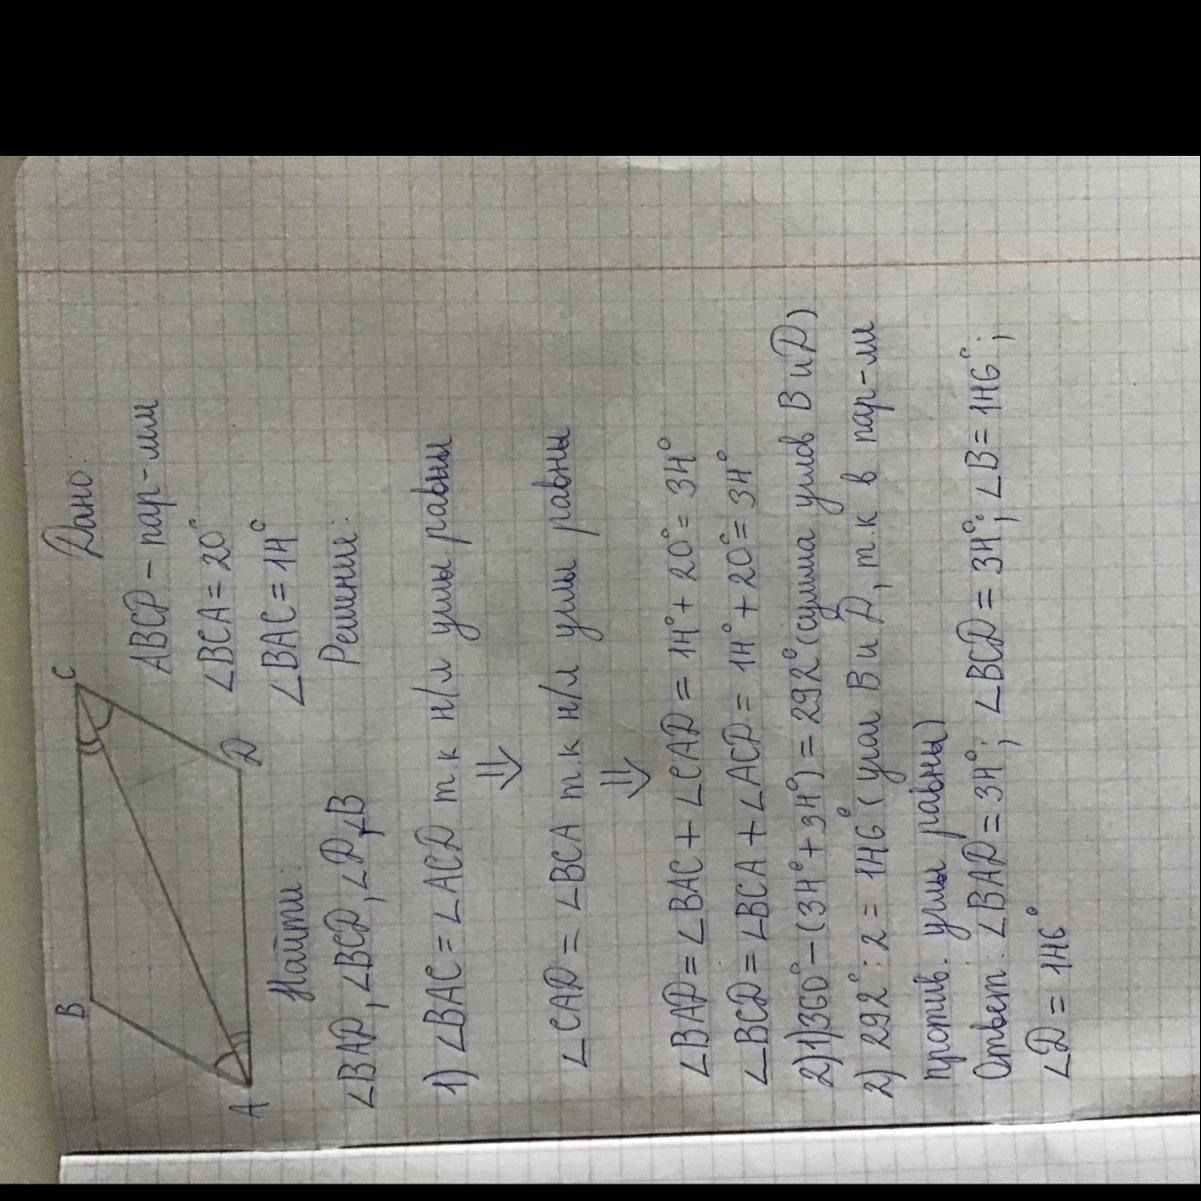 B
C
A
D
Дано:
ABCD - пар-мм
∠BCA = 20°
∠BAC = 14°
Найти:
∠BAD, ∠BCD, ∠D, ∠B
Решение:
1) ∠BAC = ∠ACD т.к н/л углы равны
⇓
∠CAD = ∠BCA т.к н/л углы равны
⇓
∠BAD = ∠BAC + ∠CAD = 14° + 20° = 34°
∠BCD = ∠BCA + ∠ACD = 14° + 20° = 34°
2) 1) 360° - (34° + 34°) = 292° (сумма углов B и D)
2) 292° : 2 = 146° (угол B и D, т.к в пар-ми
против. углы равны)
Ответ: ∠BAD = 34°; ∠BCD = 34°; ∠B = 146°;
∠D = 146°